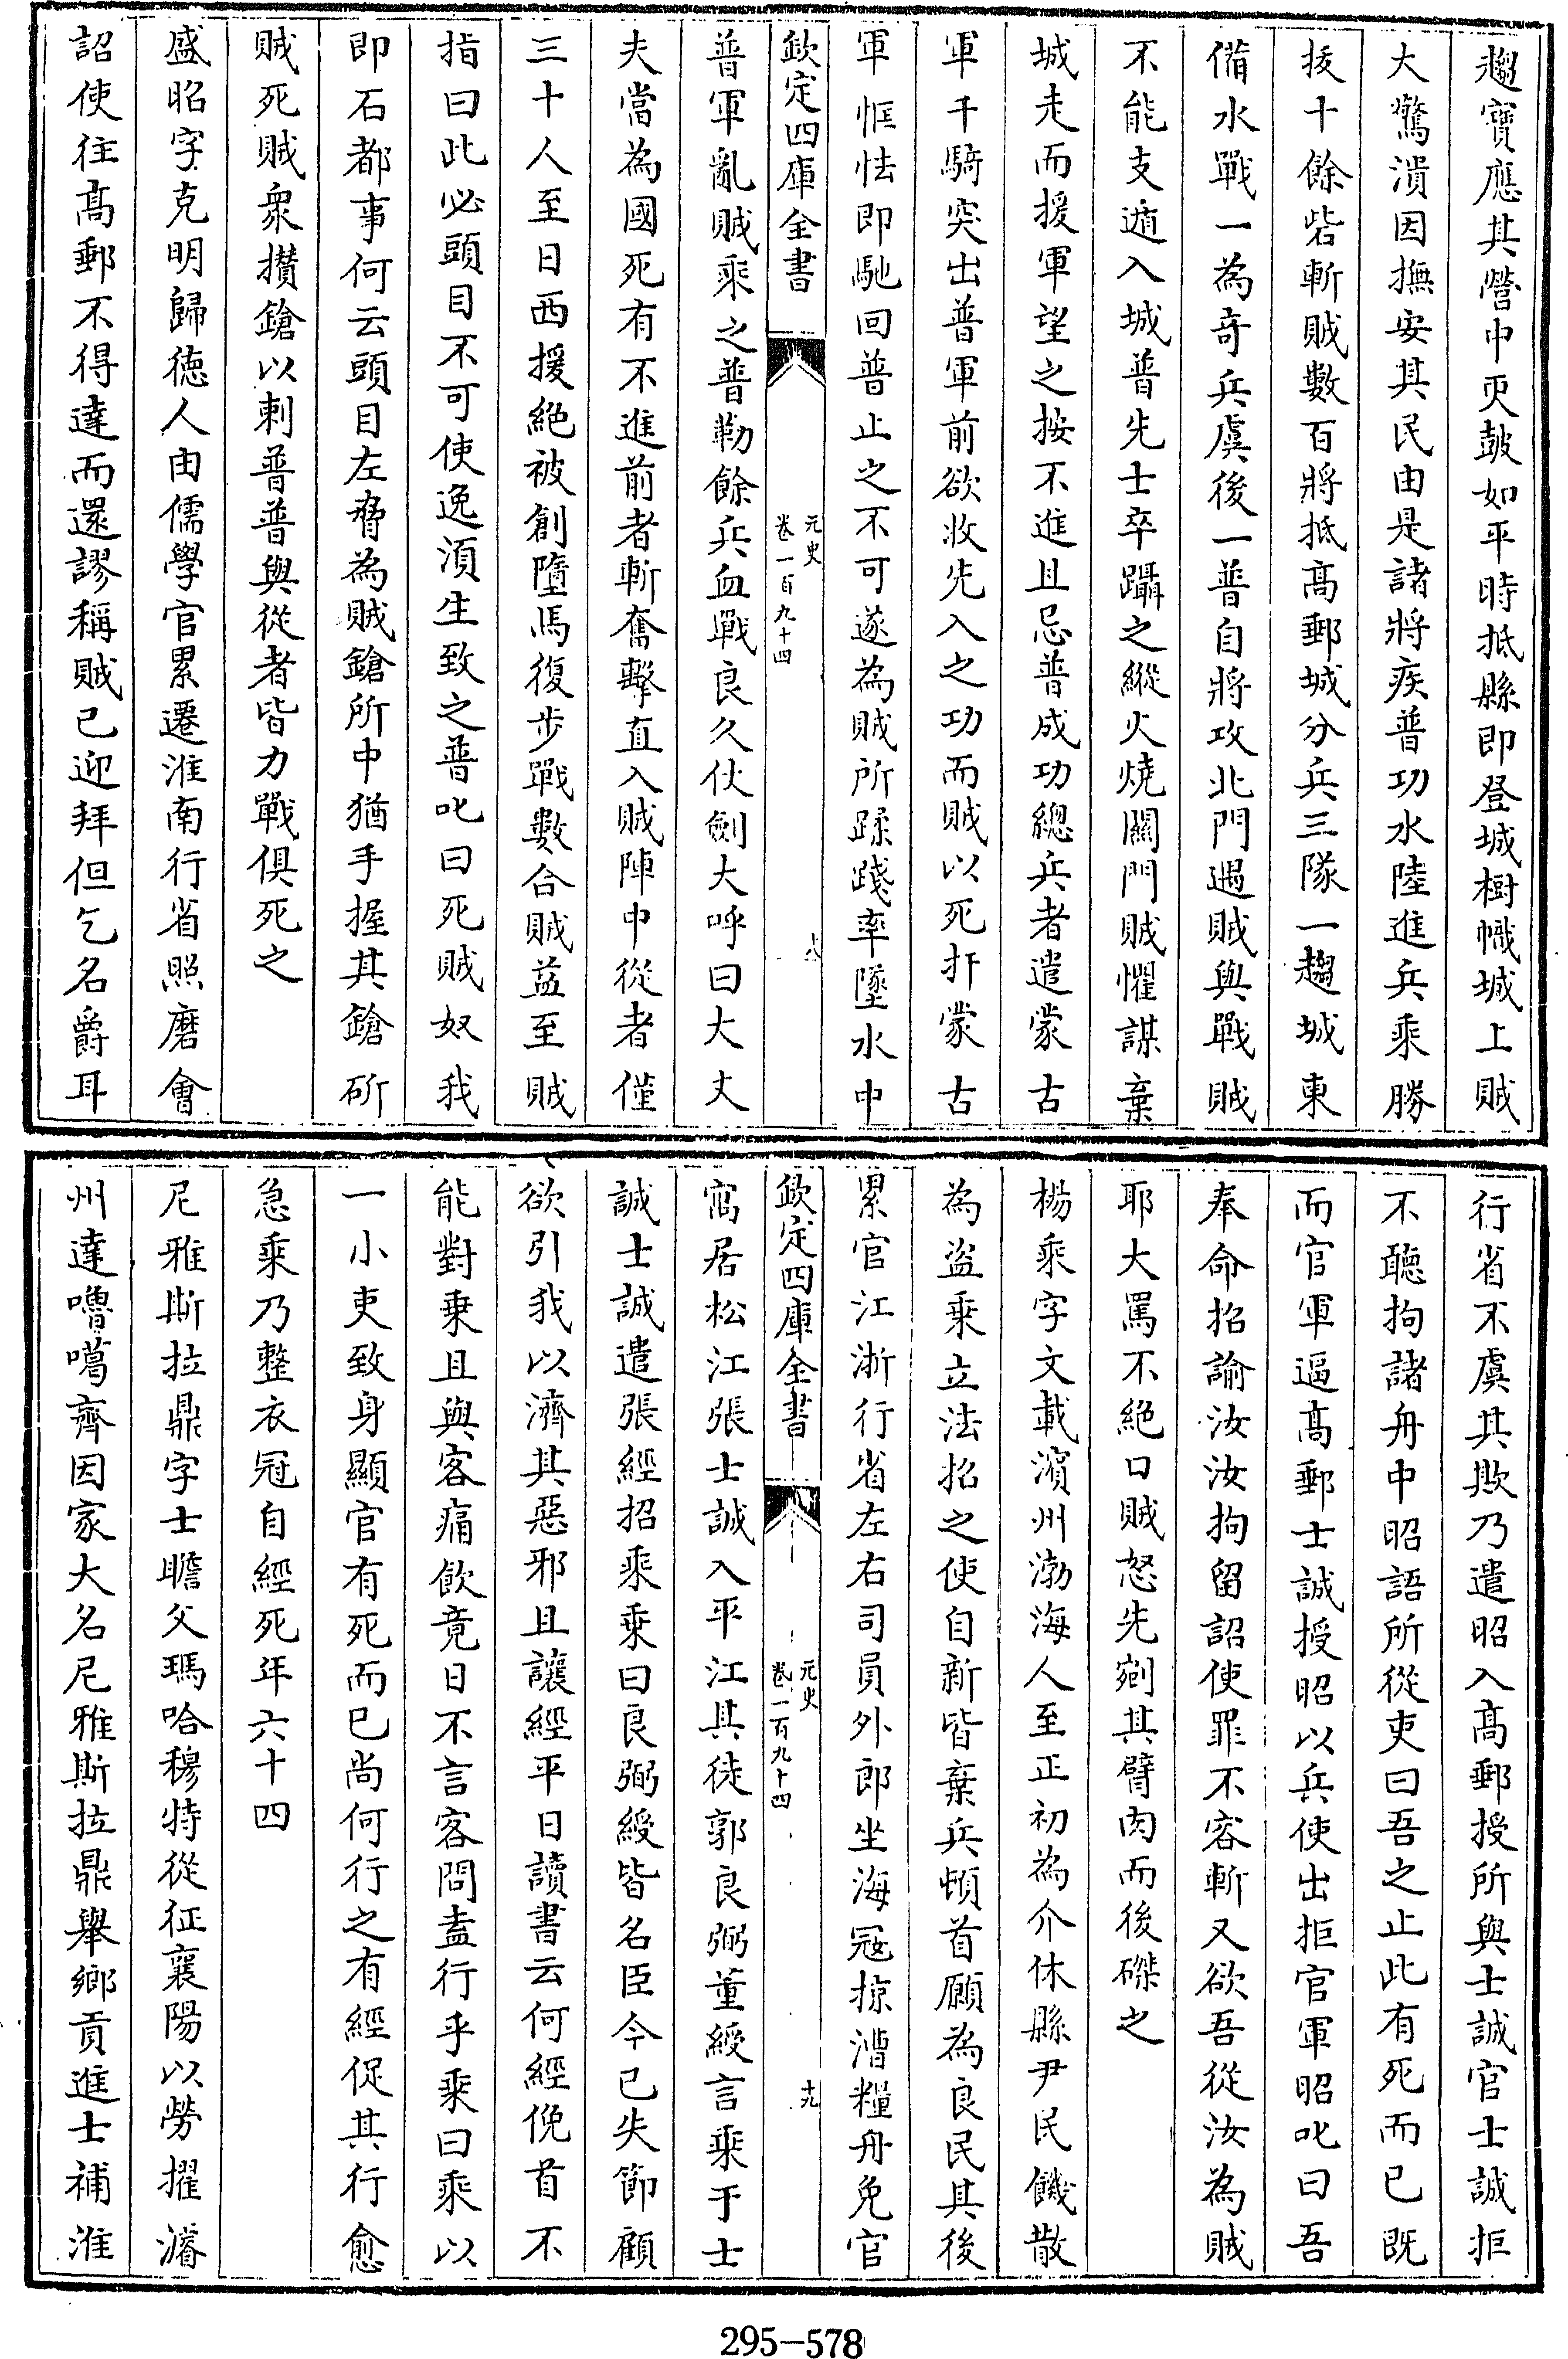 趨寶應其營中更鼓如平時抵縣即登城樹幟城上賊
大驚潰因撫安其民由是諸將疾普功水陸進兵乘勝
拔十餘砦斬賊數百將抵髙郵城分兵三隊一趨城東
備水戰一為竒兵虞後一普自將攻北門遇賊與戰賊
不能支遁入城普先士卒躡之縱火燒關門賊懼謀棄
城走而援軍望之按不進且忌普成功總兵者遣蒙古
軍千騎突出普軍前欲收先入之功而賊以死扞蒙古
軍恇怯即馳回普止之不可遂為賊所蹂踐率墜水中
欽定四庫全書
元史
卷一百九十四
十八
普軍亂賊乘之普勒餘兵血戰良久仗劍大呼曰大丈
夫當為國死有不進前者斬奮擊直入賊陣中從者僅
三十人至日西援絶被創墮馬復步戰數合賊益至賊
指曰此必頭目不可使逸湏生致之普叱曰死賊奴我
即石都事何云頭目左脅為賊鎗所中猶手握其鎗斫
賊死賊衆攢鎗以刺普普與從者皆力戰俱死之
盛昭字克明歸徳人由儒學官累遷淮南行省照磨㑹
詔使往髙郵不得達而還謬稱賊已迎拜但乞名爵耳
行省不虞其欺乃遣昭入髙郵授所與士誠官士誠拒
不聽拘諸舟中昭語所從吏曰吾之止此有死而已既
而官軍逼髙郵士誠授昭以兵使出拒官軍昭叱曰吾
奉命招諭汝汝拘留詔使罪不容斬又欲吾從汝為賊
耶大罵不絶口賊怒先剜其臂肉而後磔之
楊乘字文載濱州渤海人至正初為介休縣尹民饑散
為盗乗立法招之使自新皆棄兵頓首願為良民其後
累官江浙行省左右司員外郎坐海冦掠漕糧舟免官
欽定四庫全書
元史
卷一百九十四
十九
寓居松江張士誠入平江其徒郭良弼董綬言乘于士
誠士誠遣張經招乘乗曰良弼綬皆名臣今已失節顧
欲引我以濟其惡邪且讓經平日讀書云何經俛首不
能對乗且與客痛飲竟日不言客問盍行乎乘曰乘以
一小吏致身顯官有死而已尚何行之有經促其行愈
急乘乃整衣冠自經死年六十四
尼雅斯拉鼎字士瞻父瑪哈穆特從征襄陽以勞擢濬
州達嚕噶齊因家大名尼雅斯拉鼎舉鄉貢進士補淮
295-578